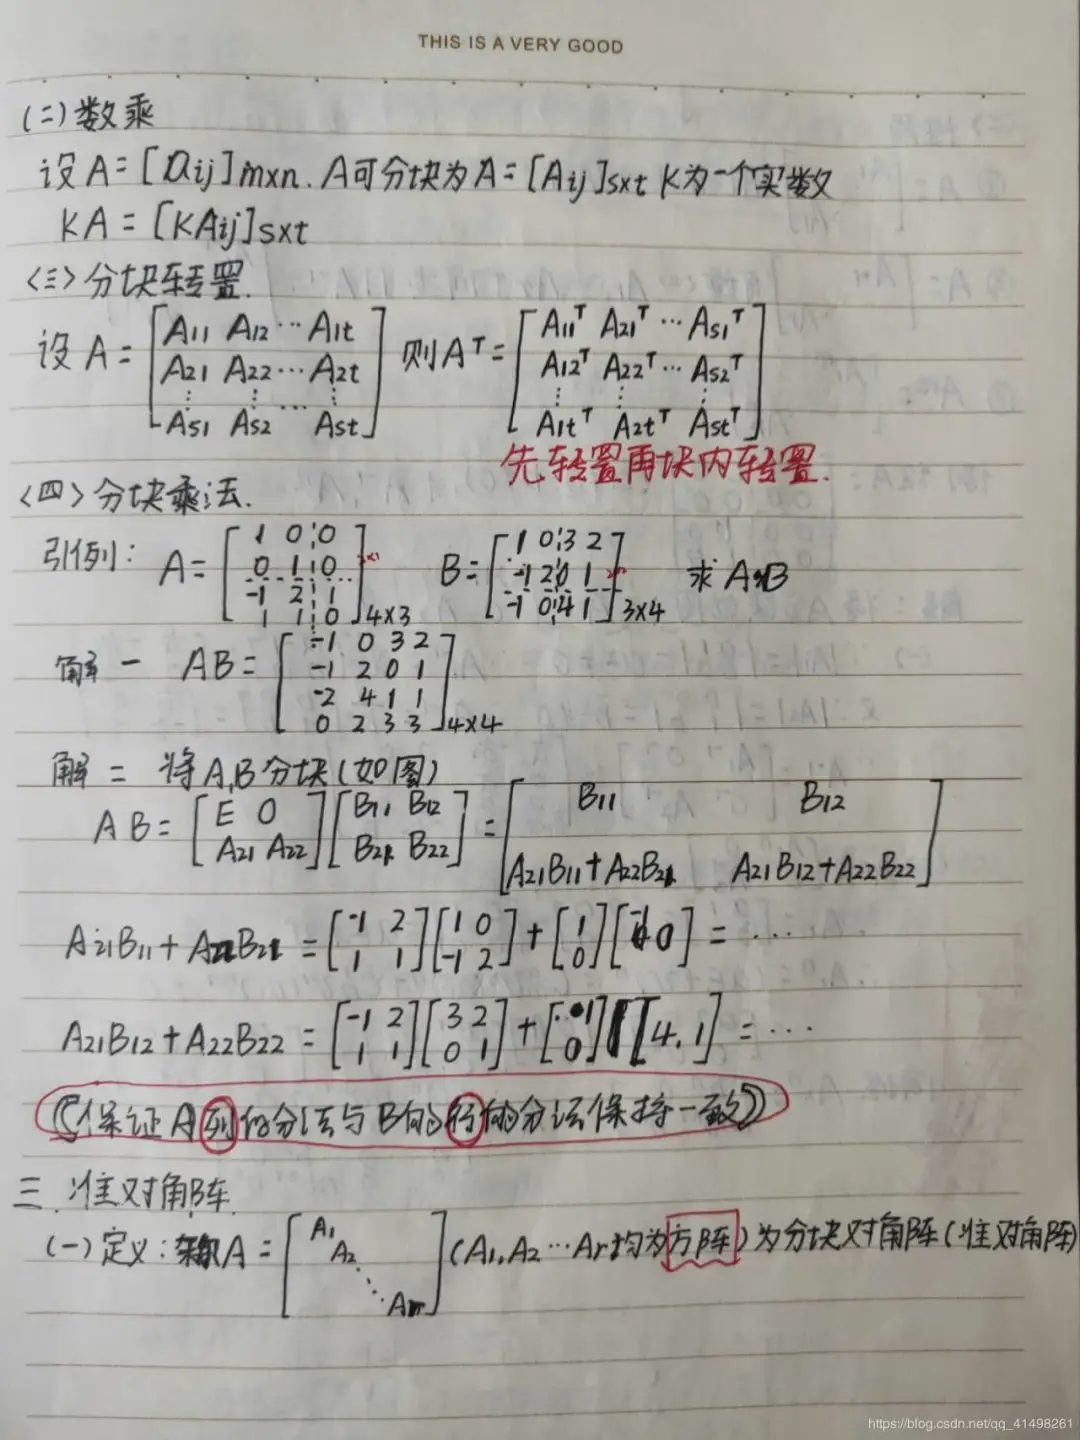 THIS IS A VERY GOOD
(二)数乘
设 A=[aij]m×n. A可分块为A=[Aij]s×t K为一个实数
KA=[KAij]s×t
<三>分块转置.
设 A=[A11 A12 ⋯ A1t 则 Aᵀ=[A11ᵀ A21ᵀ ⋯ As1ᵀ
A21 A22 ⋯ A2t A12ᵀ A22ᵀ ⋯ As2ᵀ
⋮ ⋮ ⋯ ⋮ ⋮ ⋮ ⋮
As1 As2 Ast] A1tᵀ A2tᵀ Astᵀ]
先转置再块内转置.
<四>分块乘法.
引例: A=[1 0 0 B=[1 0 3 2 求 A·B
0 1 0 -1 2 0 1
-1 2 1 -1 0 4 1]3×4
1 1 0]4×3
解一 AB=[-1 0 3 2
-1 2 0 1
-2 4 1 1
0 2 3 3]4×4
解二 将A,B分块(如图)
AB=[E 0 [B11 B12 =[B11 B12
A21 A22] B21 B22] A21B11+A22B21 A21B12+A22B22]
A21B11+A22B21=[-1 2 [1 0 +[1 [-1 0]=⋯
1 1] -1 2] 0]
A21B12+A22B22=[-1 2 [3 2 +[1 [4, 1]=⋯
1 1] 0 1] 0]
((保证A列的分法与B的行的分法保持一致))
三.准对角阵.
(一)定义:称A=[A1 (A1,A2⋯Ar均为方阵)为分块对角阵(准对角阵)
A2
⋱
Ar]
https://blog.csdn.net/qq_41498261